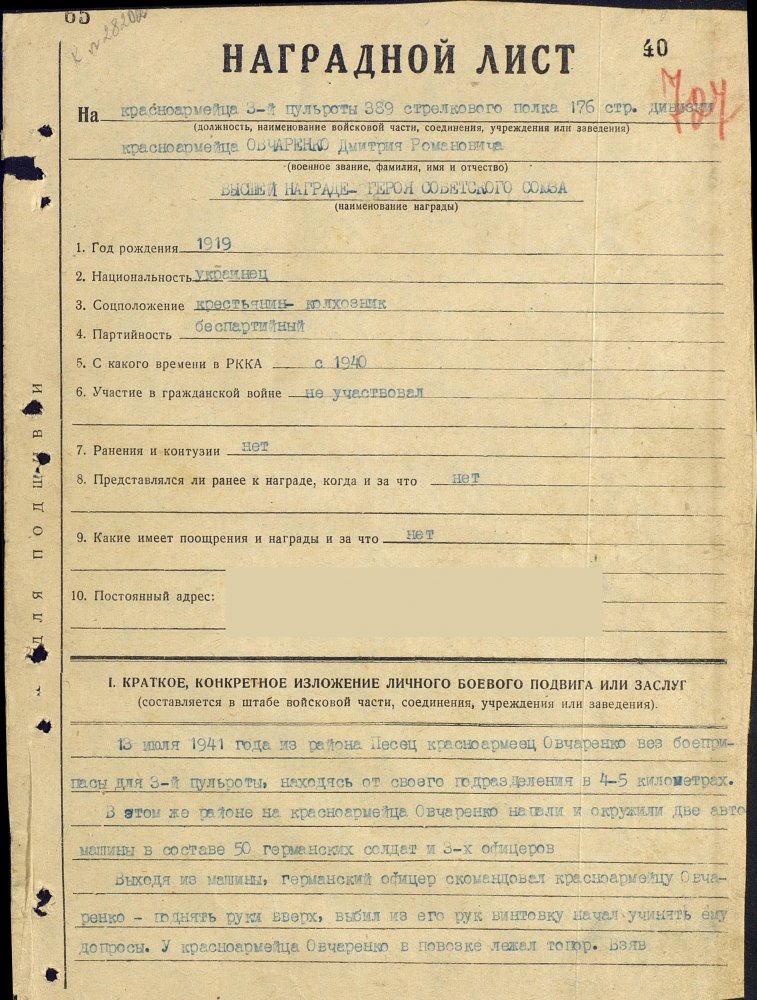 65
40
К № 28202
НАГРАДНОЙ ЛИСТ
707
На красноармейца 3-й пульроты 389 стрелкового полка 176 стр. дивизии
(должность, наименование войсковой части, соединения, учреждения или заведения)
красноармейца ОВЧАРЕНКО Дмитрия Романовича
(военное звание, фамилия, имя и отчество)
ВЫСШЕЙ НАГРАДЕ- ГЕРОЯ СОВЕТСКОГО СОЮЗА
(наименование награды)
1. Год рождения 1919
2. Национальность украинец
3. Соцположение крестьянин- колхозник
4. Партийность беспартийный
5. С какого времени в РККА с 1940
6. Участие в гражданской войне не участвовал
7. Ранения и контузии нет
8. Представлялся ли ранее к награде, когда и за что нет
9. Какие имеет поощрения и награды и за что нет
10. Постоянный адрес:
ДЛЯ ПОДШИВКИ
I. КРАТКОЕ, КОНКРЕТНОЕ ИЗЛОЖЕНИЕ ЛИЧНОГО БОЕВОГО ПОДВИГА ИЛИ ЗАСЛУГ
(составляется в штабе войсковой части, соединения, учреждения или заведения).
13 июля 1941 года из района Песец красноармеец Овчаренко вез боепри-
пасы для 3-й пульроты, находясь от своего подразделения в 4-5 километрах.
В этом же районе на красноармейца Овчаренко напали и окружили две авто
машины в составе 50 германских солдат и 3-х офицеров
Выходя из машины, германский офицер скомандовал красноармейцу Овча-
ренко - поднять руки вверх, выбил из его рук винтовку начал учинять ему
допросы. У красноармейца Овчаренко в повозке лежал топор. Взяв